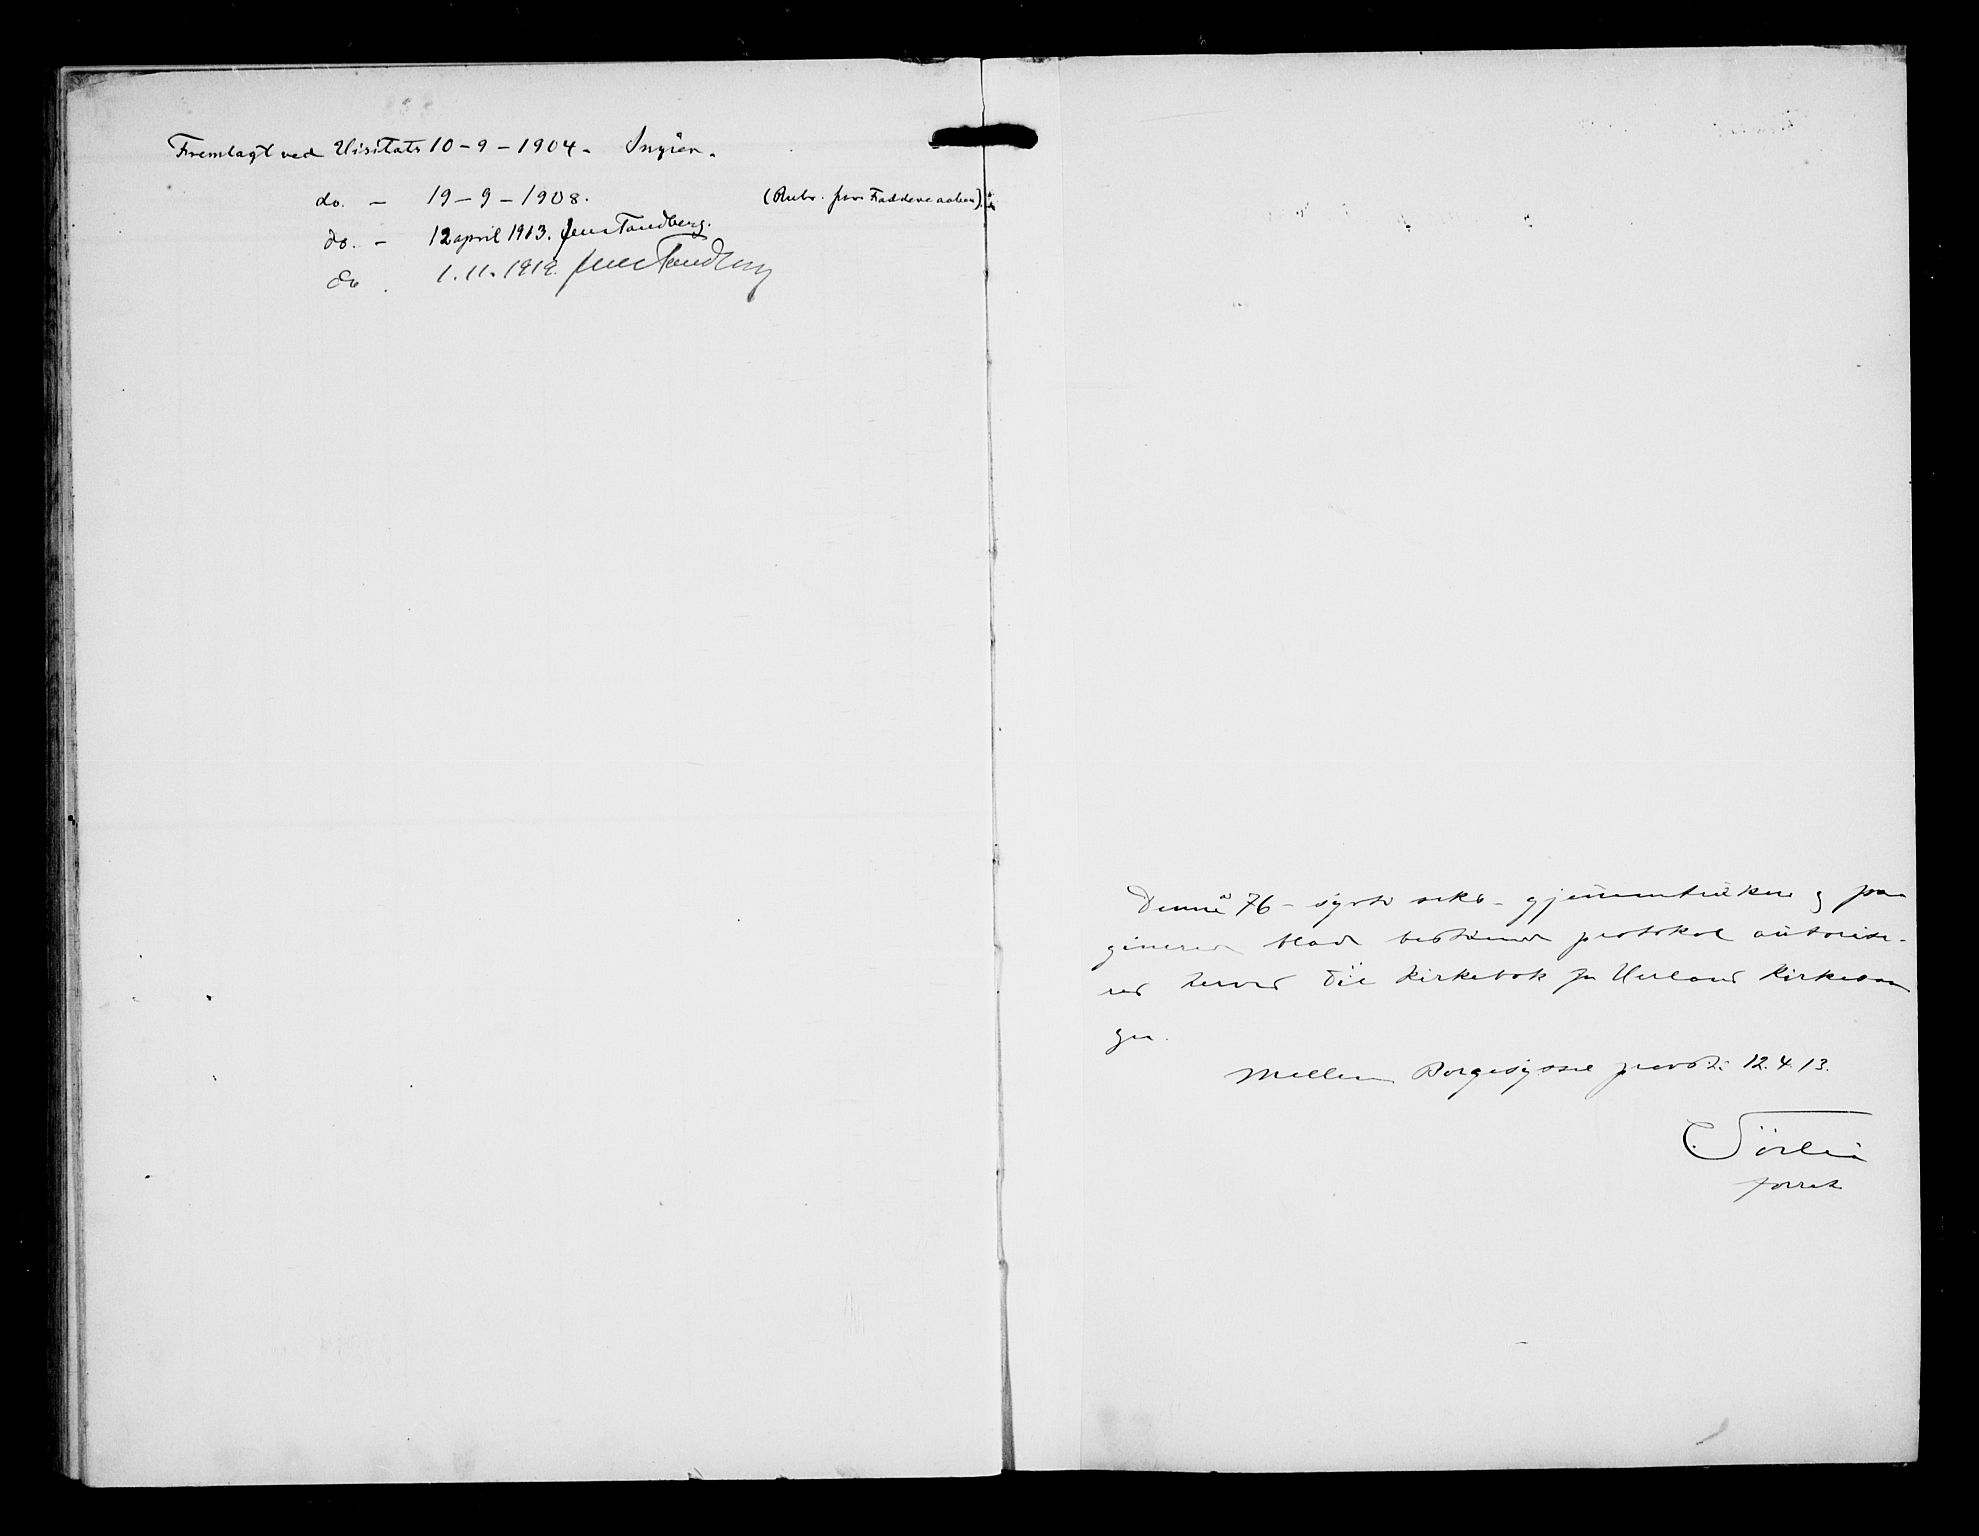 Fremlagt ved Visitats 10-9-1904-
do. - 19-9-1908. (Rubr. for Faddere aaben).
do. - 12 april 1913. Jens Tandberg.
do . 1.11.1919. Jens Tandberg
Denne 76 - sytti seks - gjennemtrukne og pa
ginerede blade bestaaende protokol autorise-
res herved til kirkebok for Herland kirkesam
Mellem Borgesyssel provsti 12.4.13.
C. Sörlie